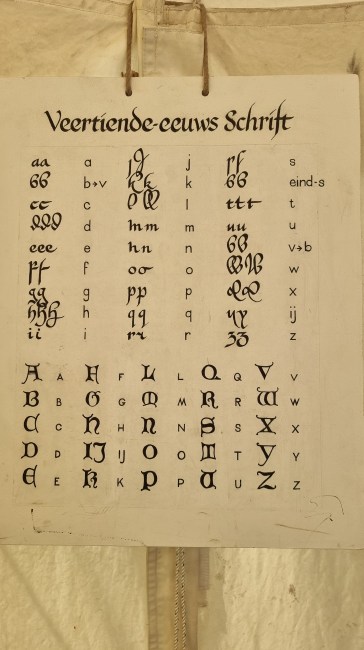 Veertiende-eeuws Schrift
aa a jj j ſſ s
66 b→v kk k 66 eind-s
cc c l ll l ttt t
ddd d mm m uu u
eee e nn n 66 v→b
ff f oo o ww w
gg g pp p xx x
hhh h qq q yy ij
ii i rr r zz z
A A F F L L Q Q V V
B B G G M M R R W W
C C H H N N S S X X
D D IJ IJ O O T T Y Y
E E K K P P U U Z Z